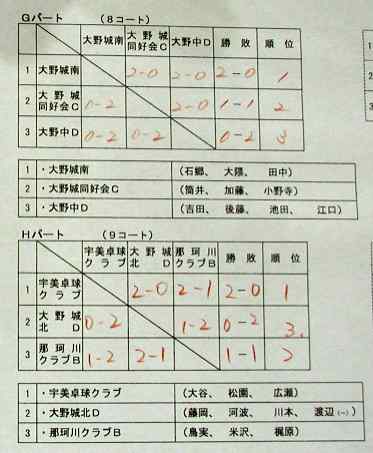 Gパート （8コート）
大野城南 大野城同好会C 大野中D 勝敗 順位
1 大野城南 2-0 2-0 2-0 1
2 大野城同好会C 0-2 2-0 1-1 2
3 大野中D 0-2 0-2 0-2 3
1 ・大野城南 （石郷、 大隈、 田中）
2 ・大野城同好会C （筒井、 加藤、 小野寺）
3 ・大野中D （吉田、 後藤、 池田、 江口）
Hパート （9コート）
宇美卓球クラブ 大野城北D 那珂川クラブB 勝敗 順位
1 宇美卓球クラブ 2-0 2-1 2-0 1
2 大野城北D 0-2 1-2 0-2 3.
3 那珂川クラブB 1-2 2-1 1-1 2
1 ・宇美卓球クラブ （大谷、 松園、 広瀬）
2 ・大野城北D （藤岡、 河波、 川本、 渡辺(一)）
3 ・那珂川クラブB （鳥実、 米沢、 梶原）